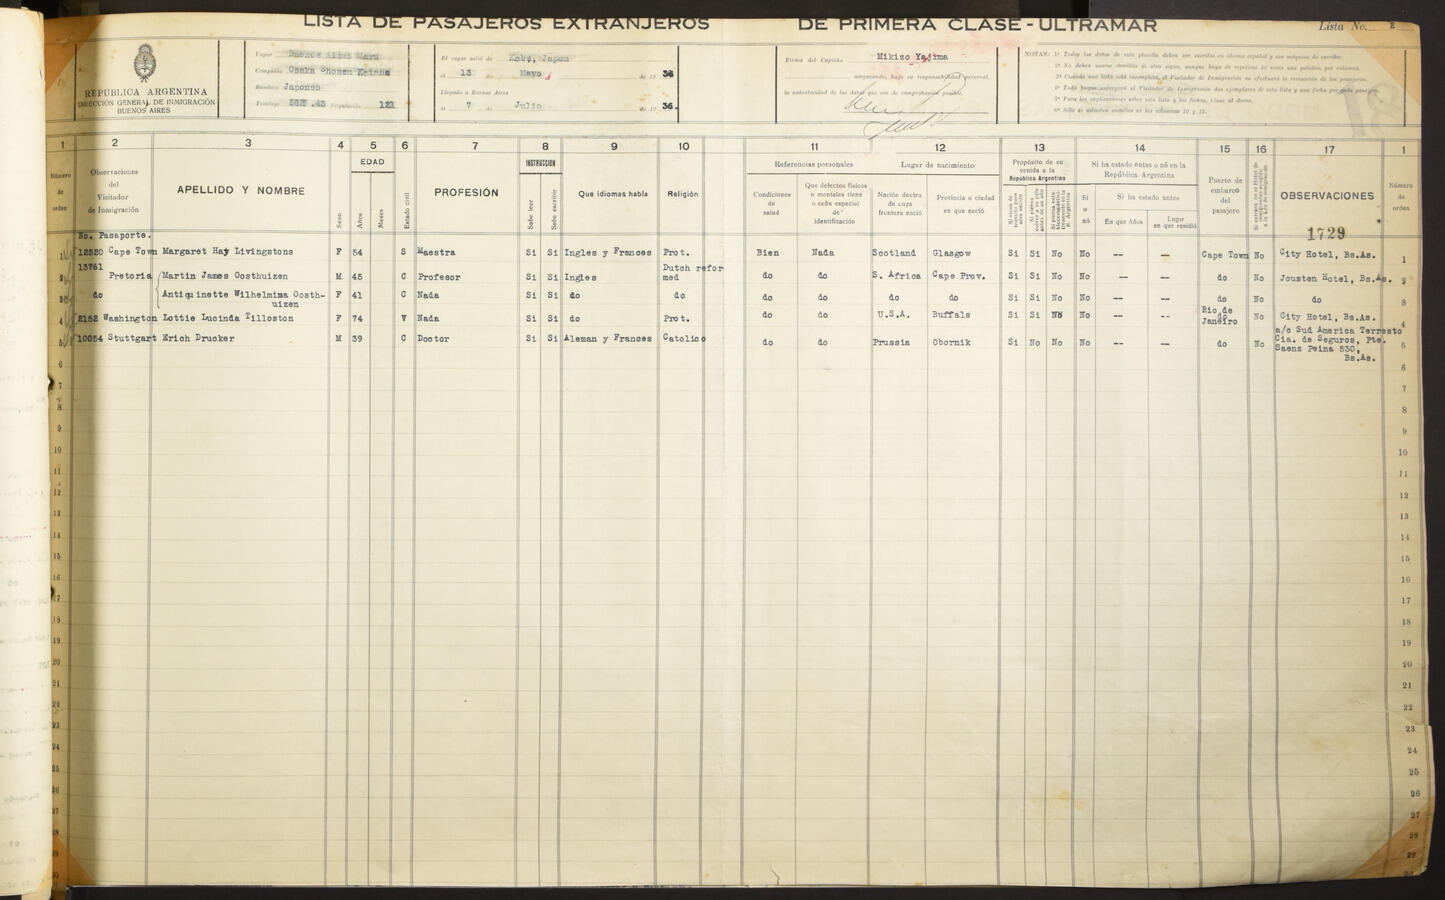 LISTA DE PASAJEROS EXTRANJEROS DE PRIMERA CLASE - ULTRAMAR
Lista No. 2
REPUBLICA ARGENTINA
DIRECCIÓN GENERAL DE INMIGRACIÓN
BUENOS AIRES
Vapor Buenos Aires Maru
Compañía Osaka Shosen Keisha
Bandera Japones
Tonelaje 582.43 Tripulación 121
El vapor salió de Kobe, Japon
el 13 de Mayo de 19 36
Llegado a Buenos Aires
el 7 de Julio de 19 36.
Firma del Capitán Mikizo Yajima
asegurando, bajo su responsabilidad personal,
la autenticidad de los datos que son de comprobación posible.
NOTAS: 1º Todos los datos de esta planilla deben ser escritos en idioma español y con máquina de escribir.
1 2 3 4 5 6 7 8 9 10 11 12 13 14 15 16 17 1
Número de orden
Observaciones del Visitador de Inmigración
APELLIDO Y NOMBRE
Sexo
EDAD
Años
Meses
Estado civil
PROFESIÓN
INSTRUCCION
Sabe leer
Sabe escribir
Que idiomas habla
Religión
Referencias personales
Condiciones de salud
Que defectos físicos o mentales tiene o seña especial de identificación
Lugar de nacimiento
Nación dentro de cuya frontera nació
Provincia o ciudad en que nació
Propósito de su venida a la República Argentina
Si ha estado antes o nó en la República Argentina
Si o nó
Si ha estado antes
En que Años
Lugar en que residió
Puerto de embarco del pasajero
OBSERVACIONES
Número de orden
1729
No. Pasaporte.
1 12520 Cape Town Margaret Hay Livingstons F 54 S Maestra Si Si Ingles y Frances Prot. Bien Nada Scotland Glasgow Si Si No No -- -- Cape Town No City Hotel, Bs.As. 1
2 13761 Pretoria Martin James Oosthuizen M 45 C Profesor Si Si Ingles Dutch reformed do do S. Africa Cape Prov. Si Si No No -- -- do No Jousten Hotel, Bs.As. 2
3 do Antiquinette Wilhelmina Oosthuizen F 41 C Nada Si Si do do do do do do Si Si No No -- -- do No do 3
4 2152 Washington Lottie Lucinda Tilloston F 74 V Nada Si Si do Prot. do do U.S.A. Buffals Si Si No No -- -- Rio de Janeiro No City Hotel, Bs.As. 4
5 10054 Stuttgart Erich Drucker M 39 C Doctor Si Si Aleman y Frances Catolico do do Prussia Obornik Si No No No -- -- do No a/c Sud America Terresto Cia. de Seguros, Pte. Saenz Peina 530, Bs.As. 5
6 6
7 7
8 8
9 9
10 10
11 11
12 12
13 13
14 14
15 15
16 16
17 17
18 18
19 19
20 20
21 21
22 22
23 23
24 24
25 25
26 26
27 27
28 28
29 29